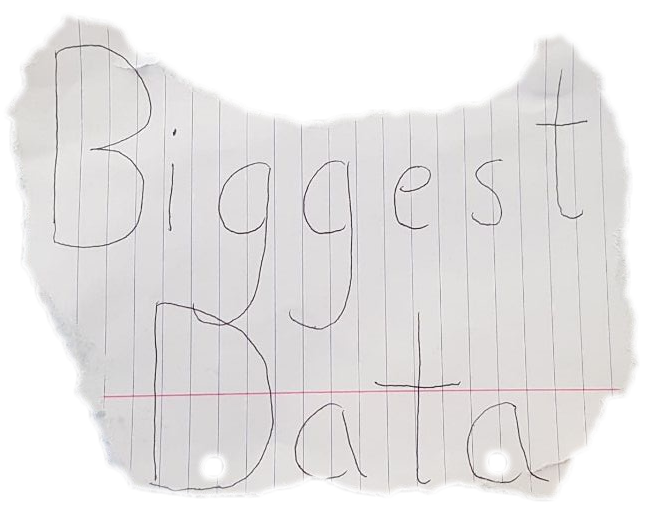 Biggest
Data